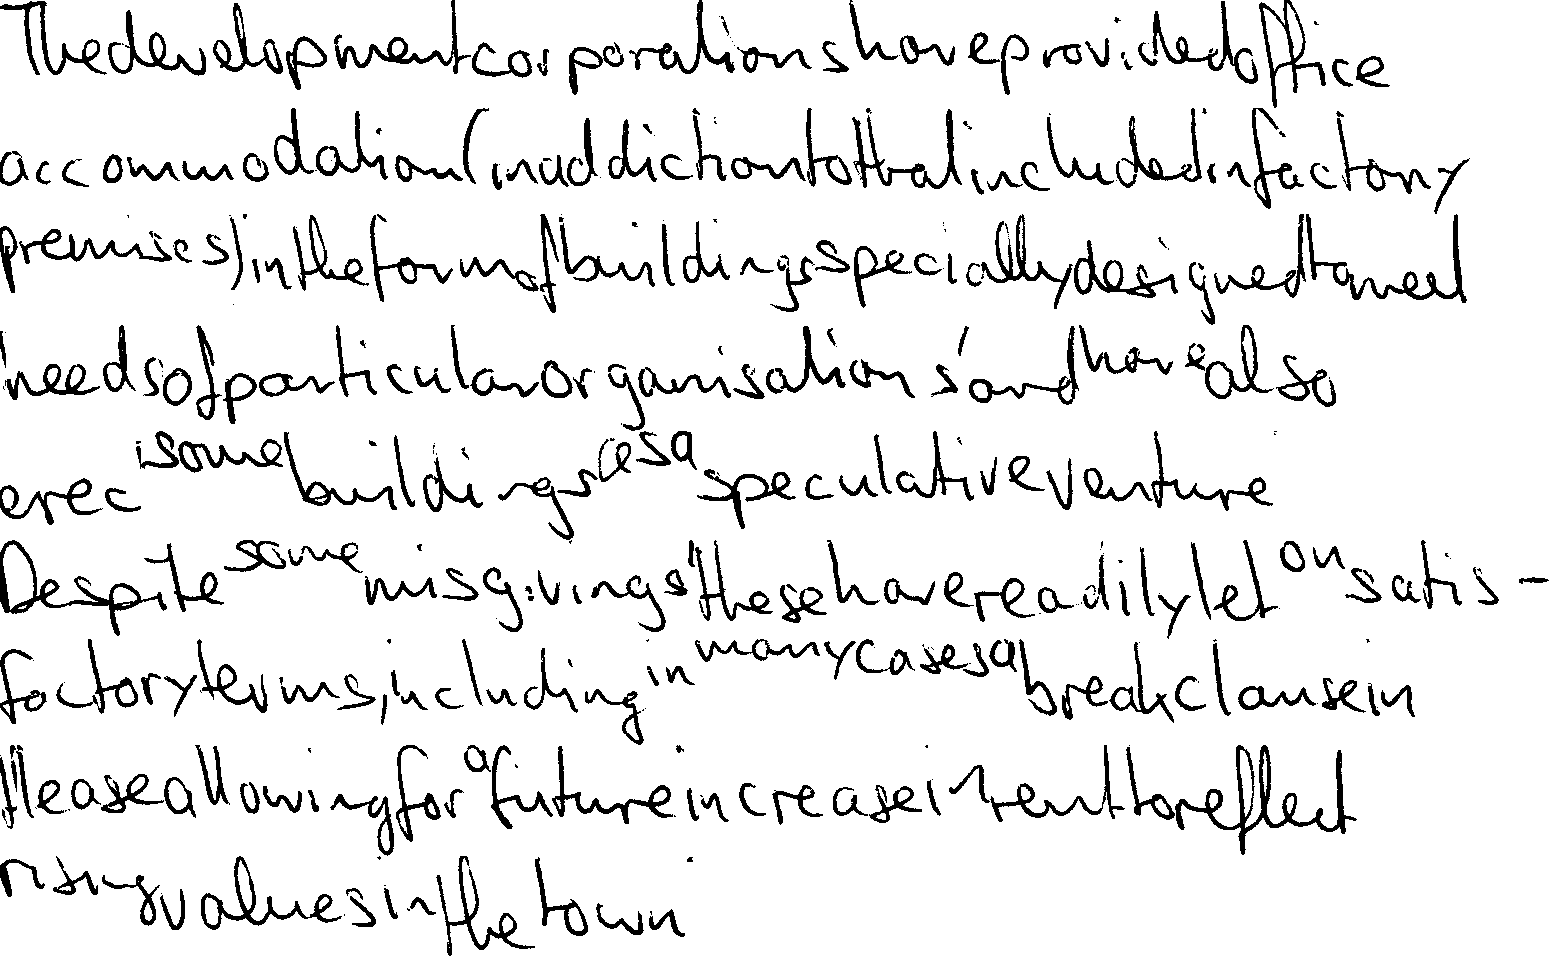 The development corporations have provided office
accommodation (in addiction to that included in factory
premises) in the form of buildings specially designed to meet
needs of particular organisations' and have also
erec some buildings as a speculative venture
Despite some misgivings' these have readily let on satis-
factory terms, including in many cases a break clause in
lease allowing for a future increase in rent to reflect
rising values in the town